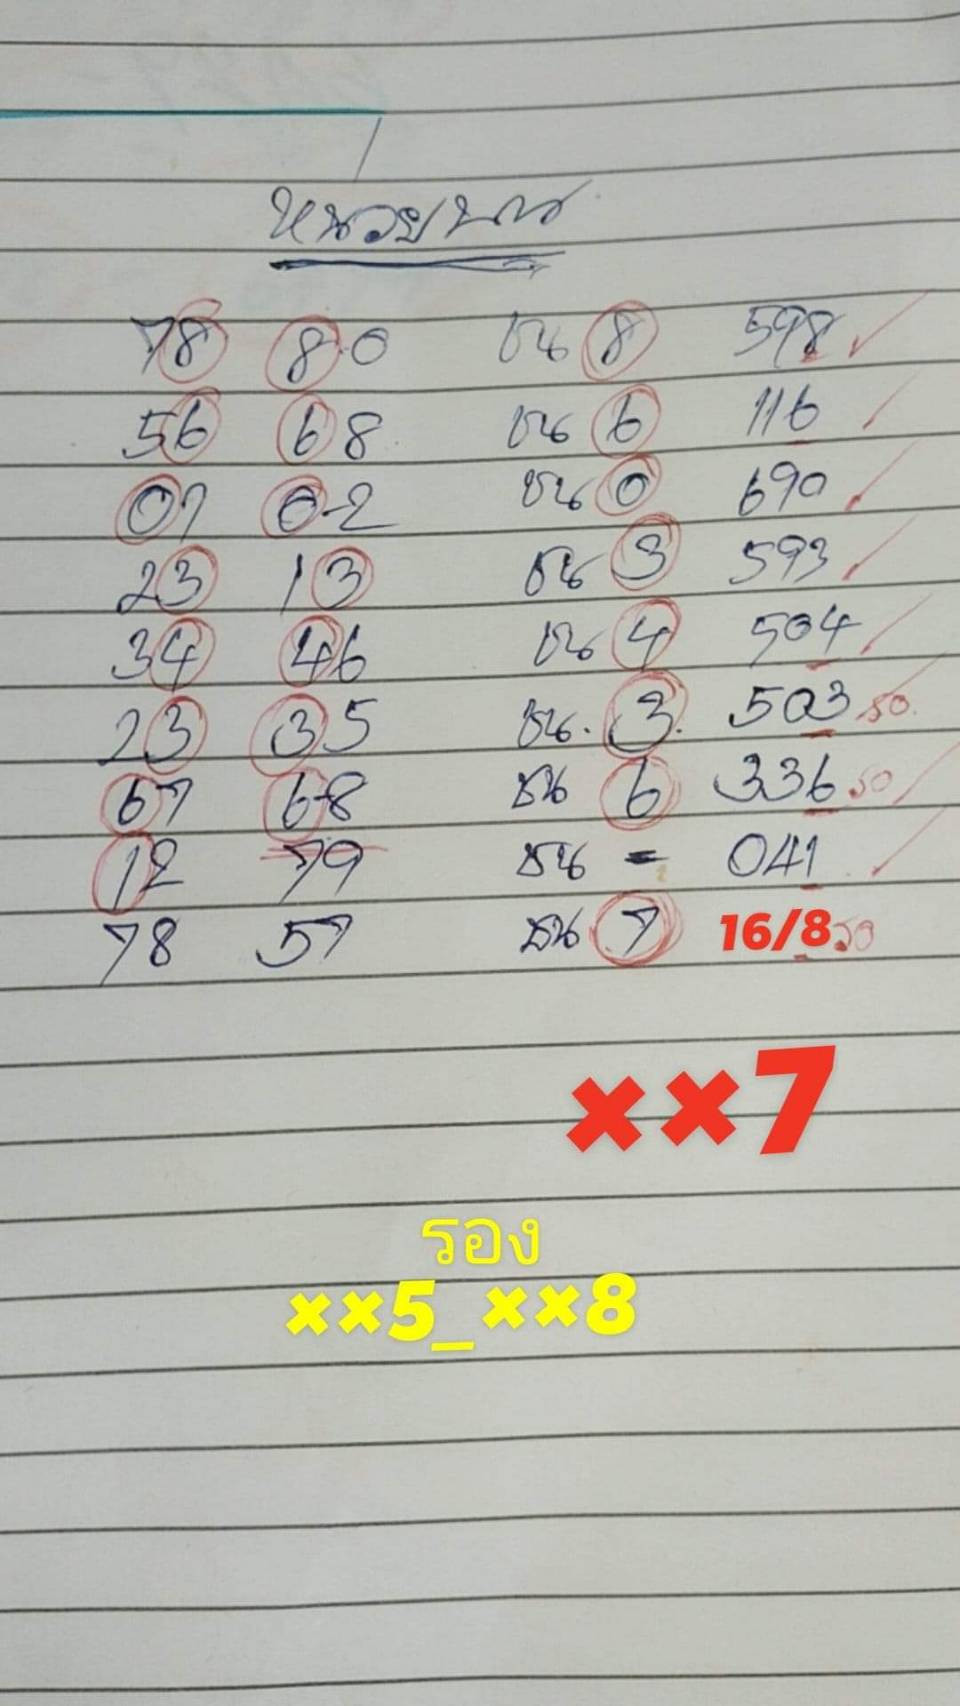 หน่วยบน
78 8.0 ชน 8 598
56 68 ชน 6 116
07 0-2 ชน 0 690
23 13 ชน 3 593
34 46 ชน 4 504
23 35 ชน. 3. 503 50.
67 6-8 ชน 6 336 50
12 79 ชน - 041
78 57 ชน 7 16/8 50
××7
รอง
××5_××8